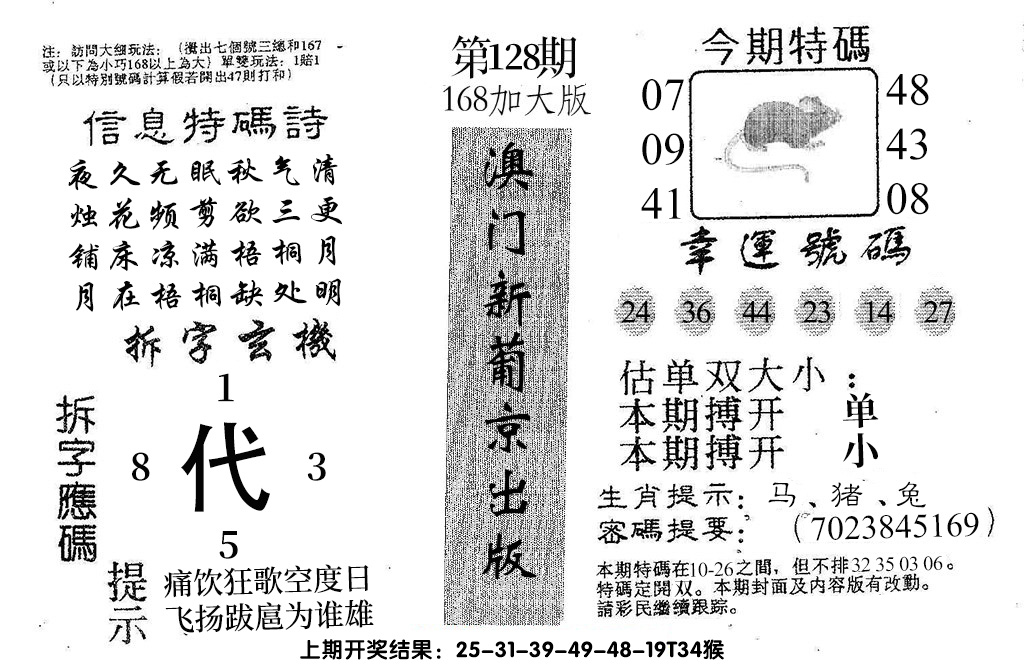 注：訪問大细玩法：（攪出七個號三總和167
或以下為小巧168以上為大）單雙玩法：1賠1
（只以特別號碼計算假若開出47則打和）
信息特碼詩
夜久无眠秋气清
烛花频剪欲三更
铺床凉满梧桐月
月在梧桐缺处明
拆字玄機
拆字應碼
1
8 代 3
5
提示
痛饮狂歌空度日
飞扬跋扈为谁雄
第128期
168加大版
澳门新葡京出版
今期特碼
07 48
09 43
41 08
幸運號碼
24 36 44 23 14 27
估单双大小：
本期搏开 单
本期搏开 小
生肖提示：马、猪、兔
密碼提要：（7023845169）
本期特碼在10-26之間，但不排32 35 03 06。
特碼定開双。本期封面及内容版有改動。
請彩民繼續跟踪。
上期开奖结果：25-31-39-49-48-19T34猴